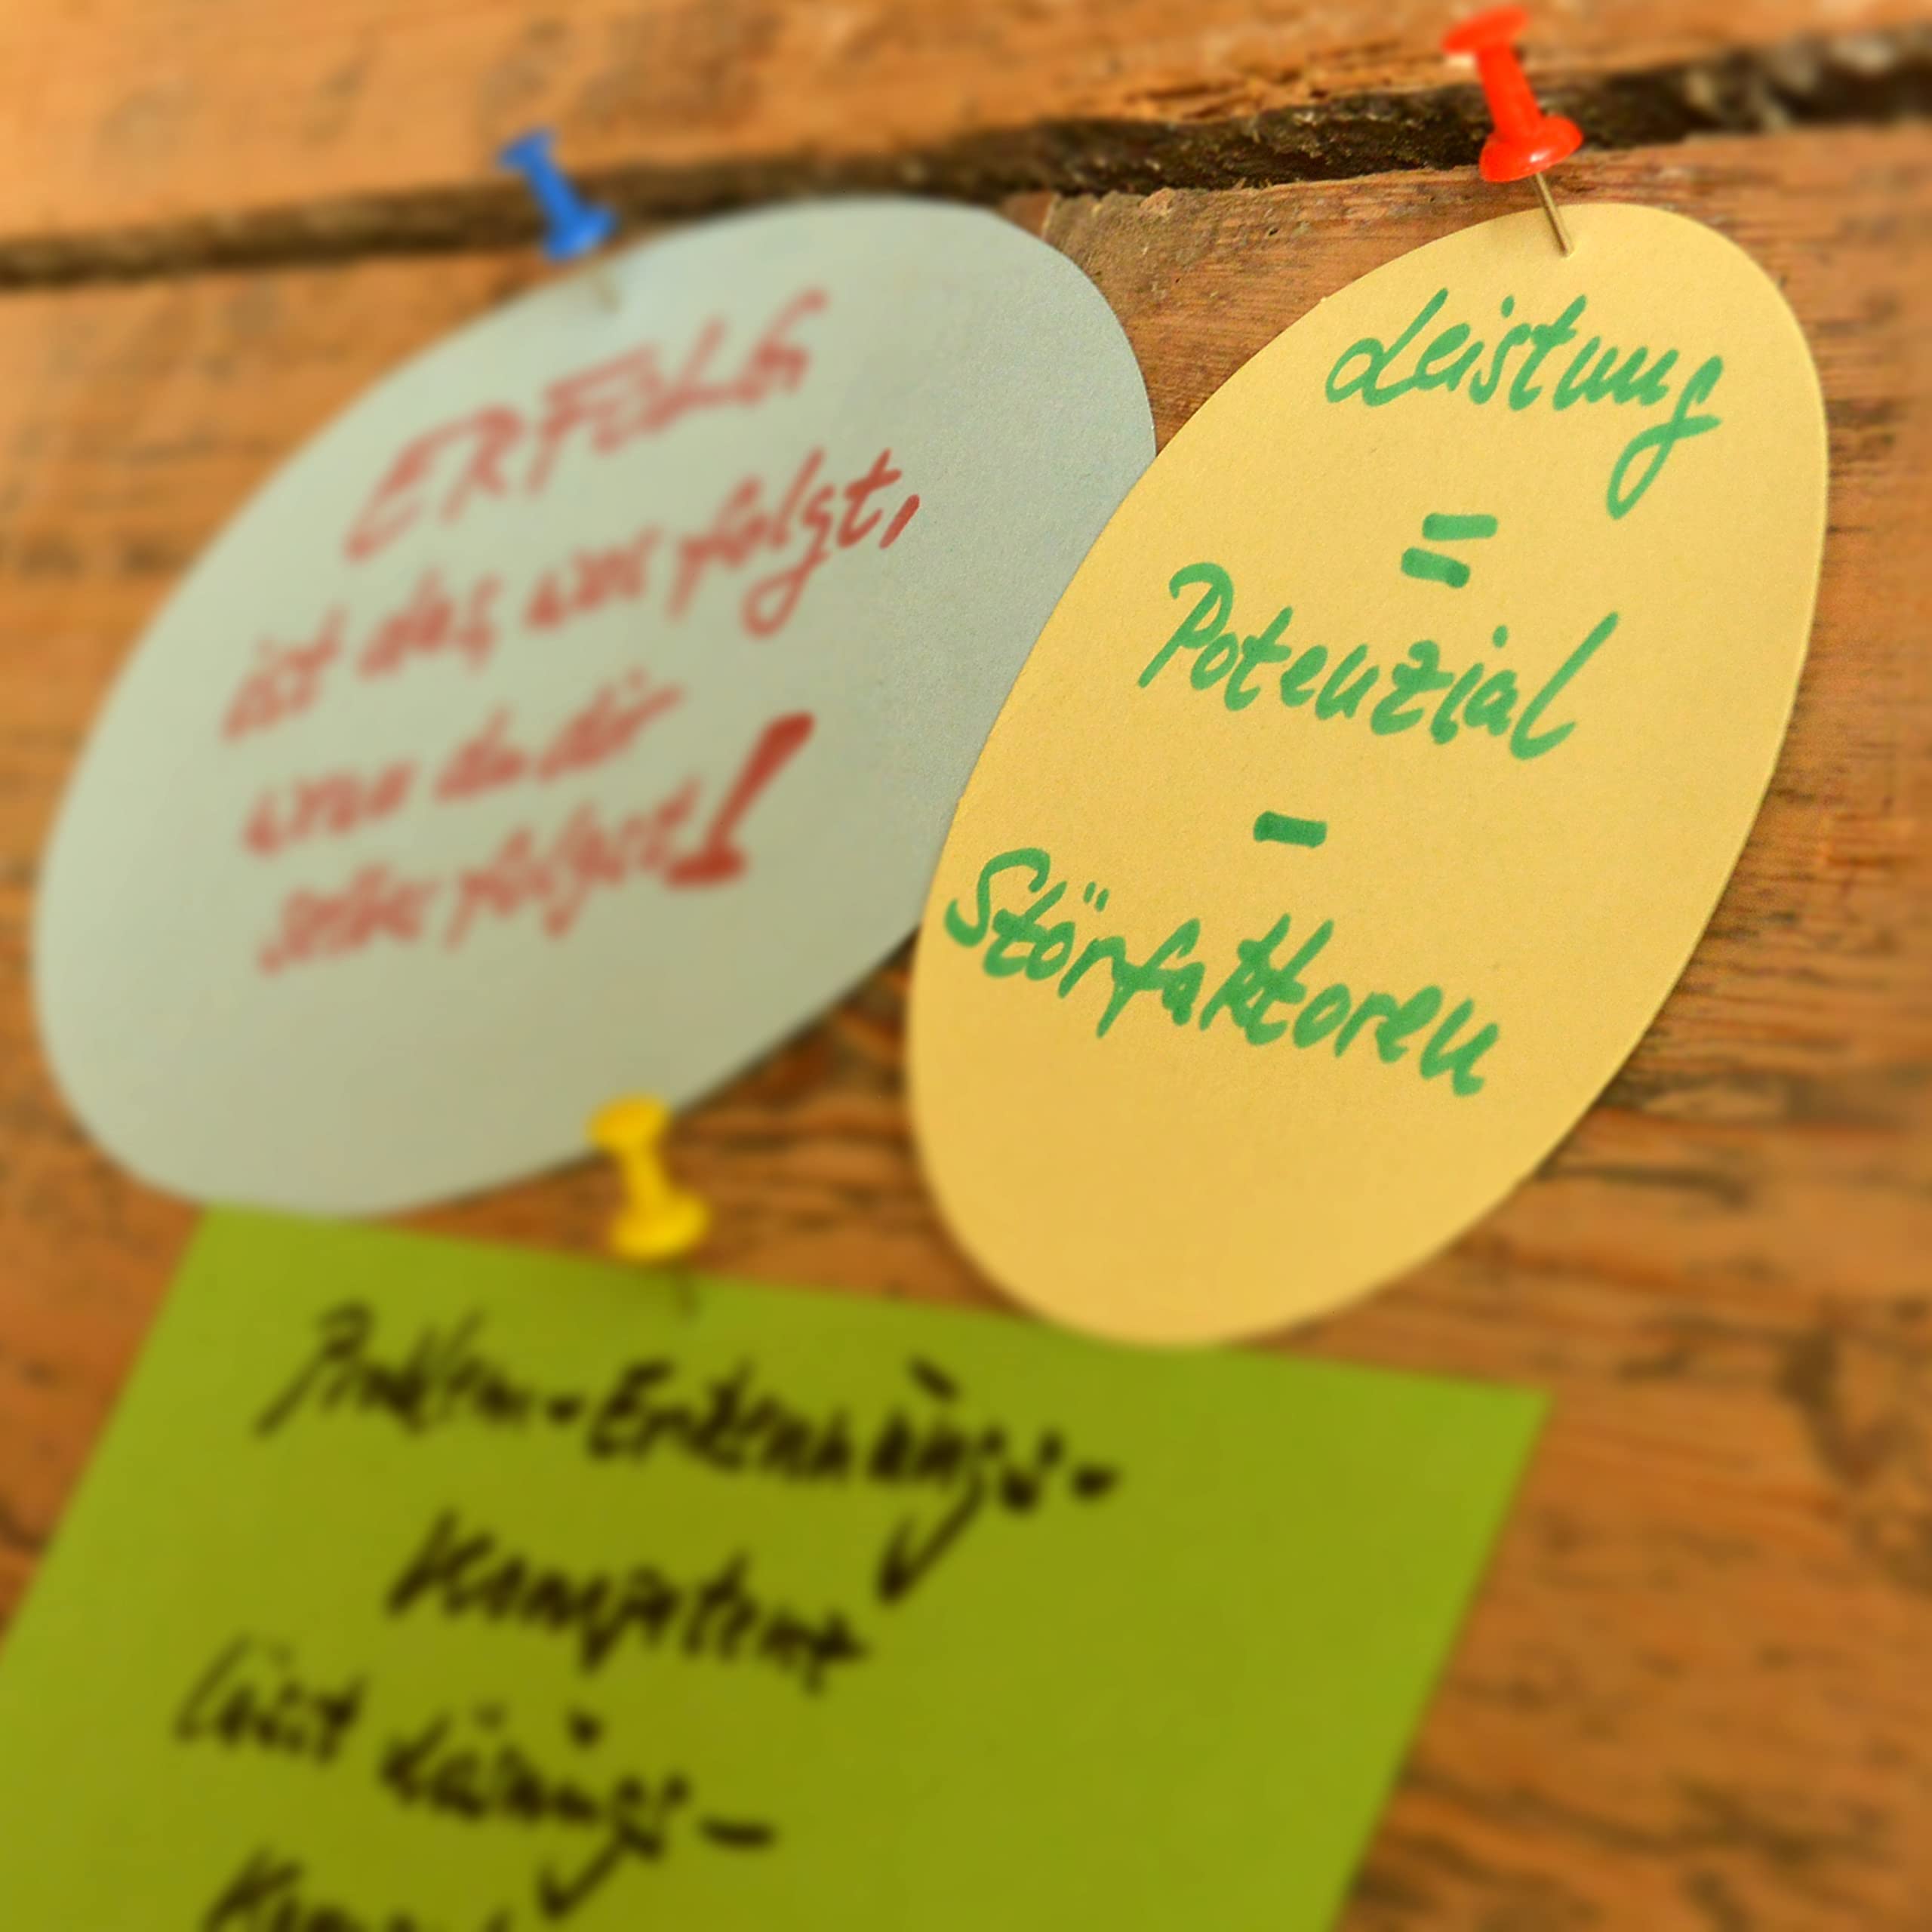 ERFOLG
ist das, was folgt,
wenn du dir
selbst folgst!
Leistung
=
Potenzial
-
Störfaktoren
Problem-Erkennungs-
Kompetenz
löst Lösungs-